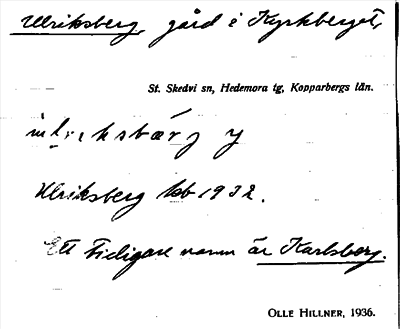 Ulriksberg, gård i Kyrkberget,
St. Skedvi sn, Hedemora tg, Kopparbergs län.
Ulriksberg kb 1932.
Ett tidigare namn är Karlsberg.
OLLE HILLNER, 1936.